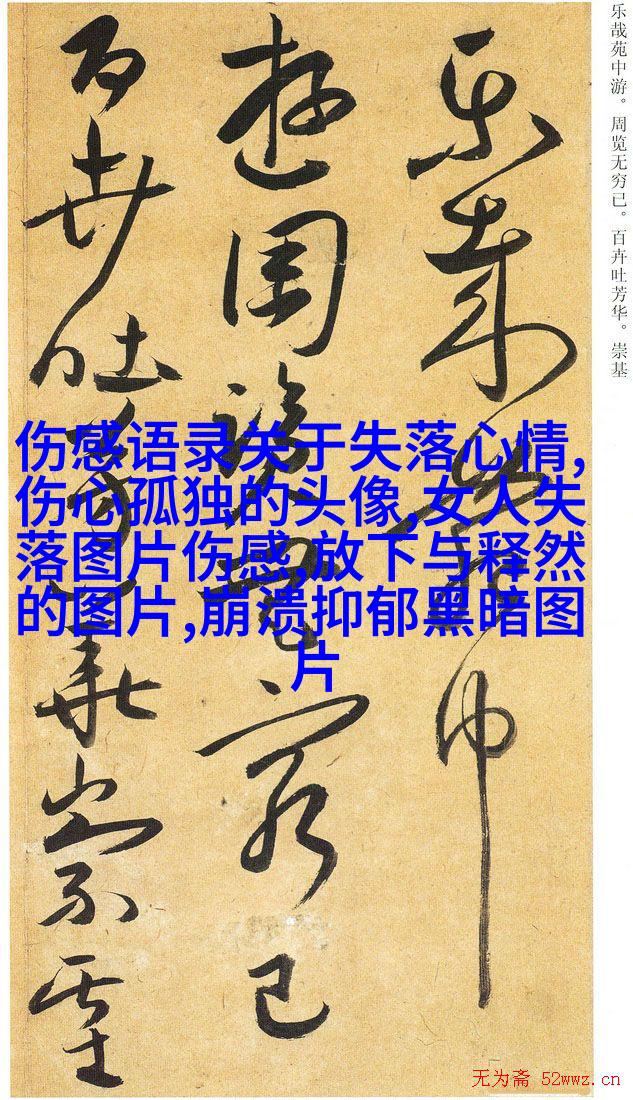 乐哉苑中游。周览无穷已。百卉吐芳华。崇基
樂哉苑中
遊周覽無窮已
百卉吐芳華崇基
伤感语录关于失落心情,
伤心孤独的头像,女人失
落图片伤感,放下与释然
的图片,崩溃抑郁黑暗图
片
无为斋 52wwz.cn